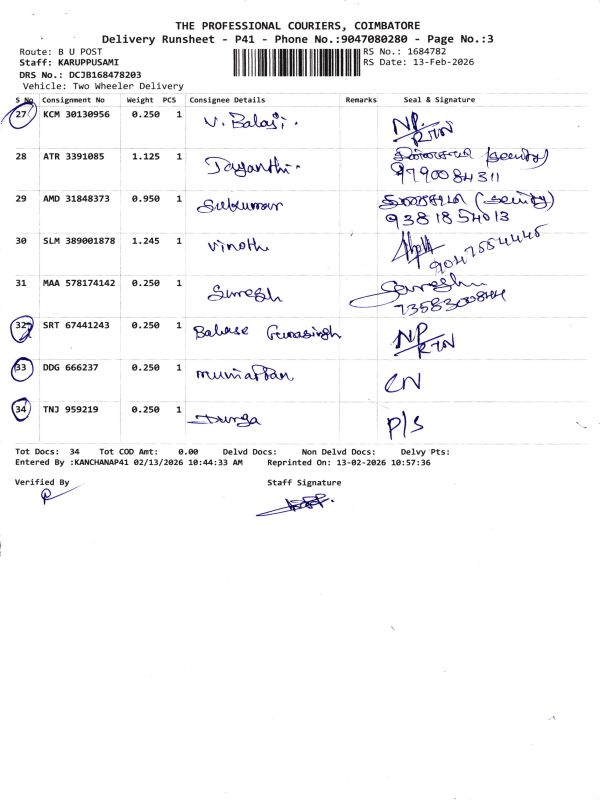 THE PROFESSIONAL COURIERS, COIMBATORE
Delivery Runsheet - P41 - Phone No.:9047080280 - Page No.:3
Route: B U POST RS No.: 1684782
Staff: KARUPPUSAMI RS Date: 13-Feb-2026
DRS No.: DCJB168478203
Vehicle: Two Wheeler Delivery
S No Consignment No Weight PCS Consignee Details Remarks Seal & Signature
27 KCM 30130956 0.250 1 V. Balaji. NP/RTN
28 ATR 3391085 1.125 1 Jayanthi. (security)
9790084311
29 AMD 31848373 0.950 1 (security)
9381854013
30 SLM 389001878 1.245 1 Vinoth
31 MAA 578174142 0.250 1 Suresh
7358300844
32 SRT 67441243 0.250 1 NP/RTN
33 DDG 666237 0.250 1 CN
34 TNJ 959219 0.250 1 Durga P/S
Tot Docs: 34 Tot COD Amt: 0.00 Delvd Docs: Non Delvd Docs: Delvy Pts:
Entered By :KANCHANAP41 02/13/2026 10:44:33 AM Reprinted On: 13-02-2026 10:57:36
Verified By Staff Signature